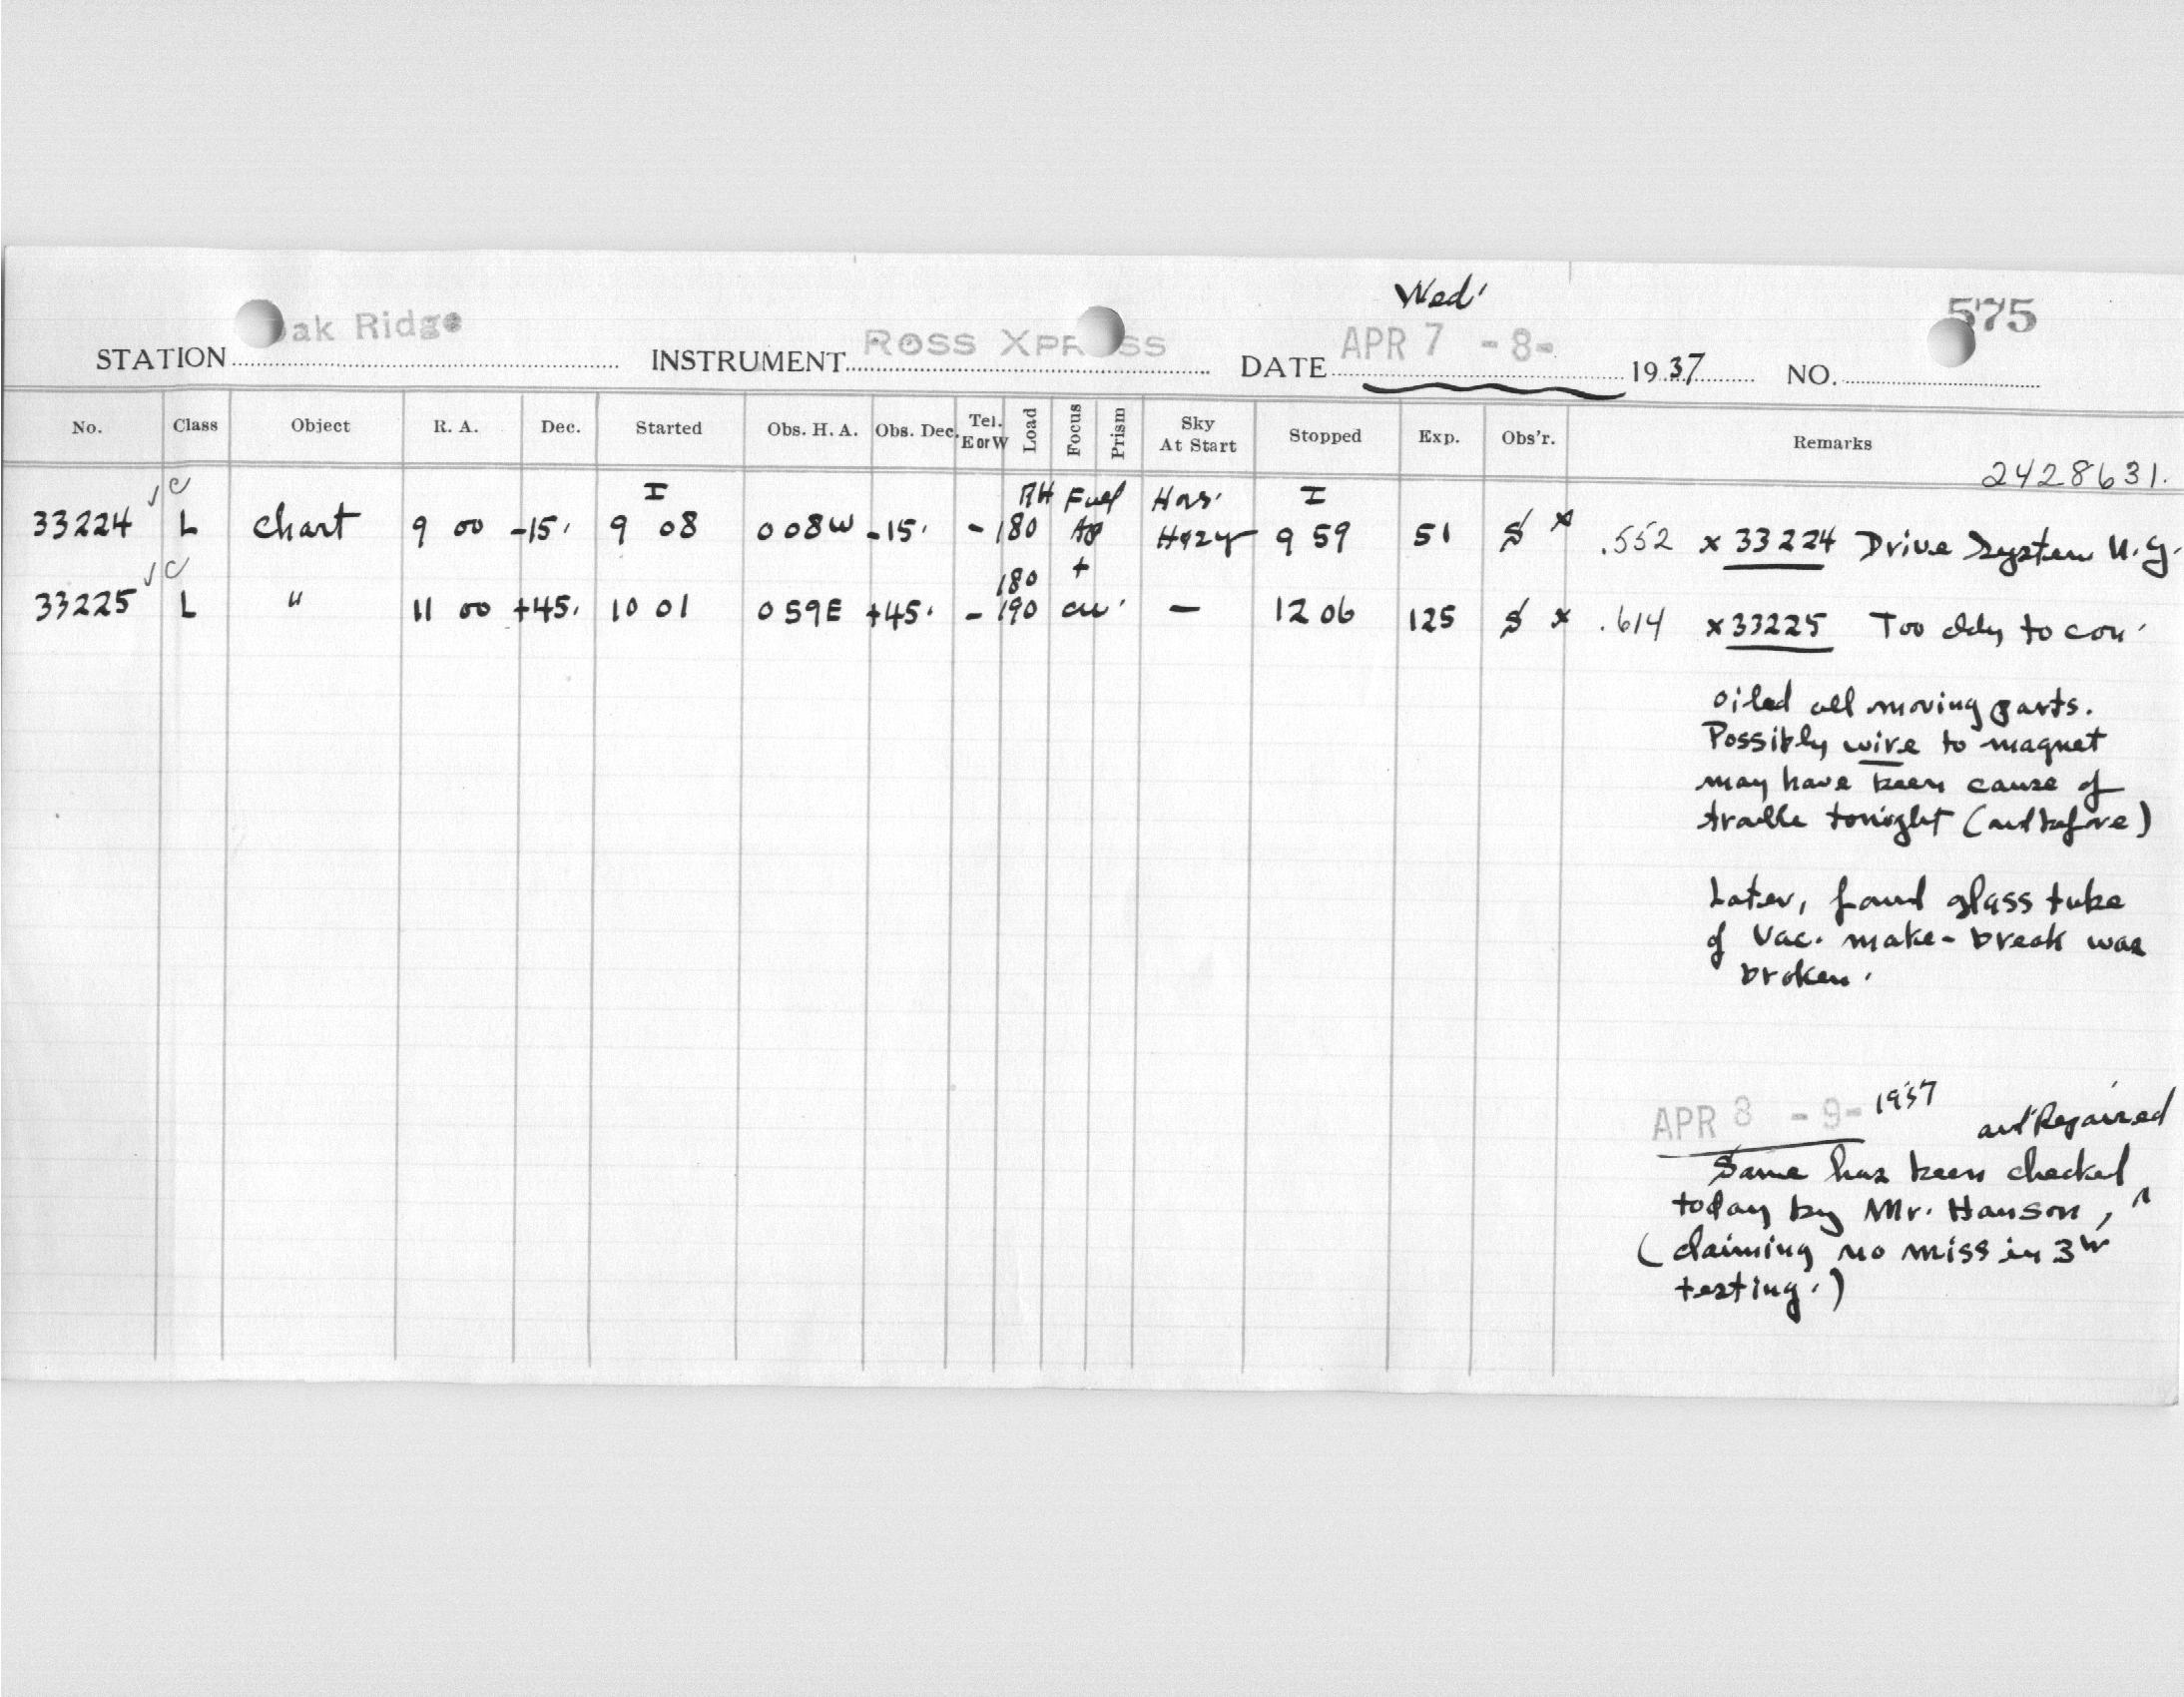 Wed'
STATION Oak Ridge INSTRUMENT ROSS XPRESS DATE APR 7 -8- 1937 NO. 575
No. Class Object R. A. Dec. Started Obs. H. A. Obs. Dec. Tel. E or W Load Focus Prism Sky At Start Stopped Exp. Obs'r. Remarks
2428631.
I RH Fuel I
33224 L chart 9 00 -15. 9 08 0 08W -15. - 180 Hazy 9 59 51 S x .552 x 33224 Drive System N.G.
180 +
33225 L " 11 00 +45. 10 01 0 59E +45. - 190 — 12 06 125 S x .614 x 33225 Too cldy to con'
Oiled all moving parts.
Possibly wire to magnet
may have been cause of
trouble tonight (and before)
Later, found glass tube
of Vac. make-break was
broken.
APR 8 -9- 1937
and Repaired
Same has been checked
today by Mr. Hanson, ^
(claiming no miss in 3
testing.)